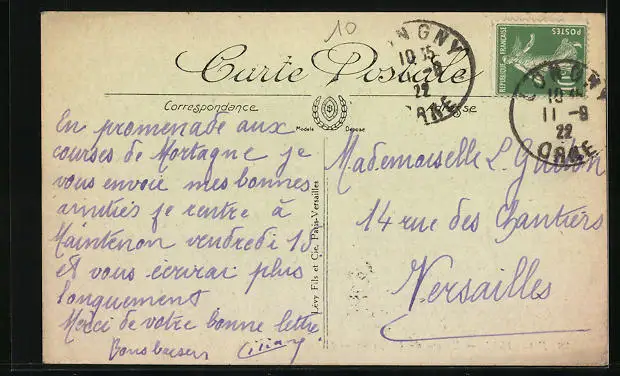 10
Carte Postale
Correspondance
Adresse
Modèle Déposé
LONGNY
10 15
11 -8
22
ORNE
LONGNY
10 15
11 -8
22
ORNE
POSTES
REPUBLIQUE FRANÇAISE
En promenade aux
courses de Mortagne je
vous envoie mes bonnes
amitiés je rentre à
Maintenon vendredi 15
et vous écrirai plus
longuement
Merci de votre bonne lettre
Bons baisers
Lévy Fils et Cie, Paris-Versailles
Mademoiselle L.
14 rue des Chantiers
Versailles